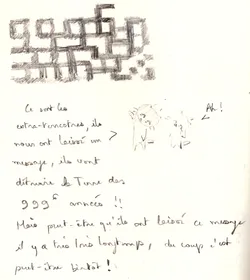 Ah !
Ce sont les
extra-terrestres, ils
nous ont laissé un
message, ils vont
détruire la Terre des
999 années !!
Mais peut-être qu'ils ont laissé ce message
il y a très très longtemps, du coup c'est
peut-être bientôt !